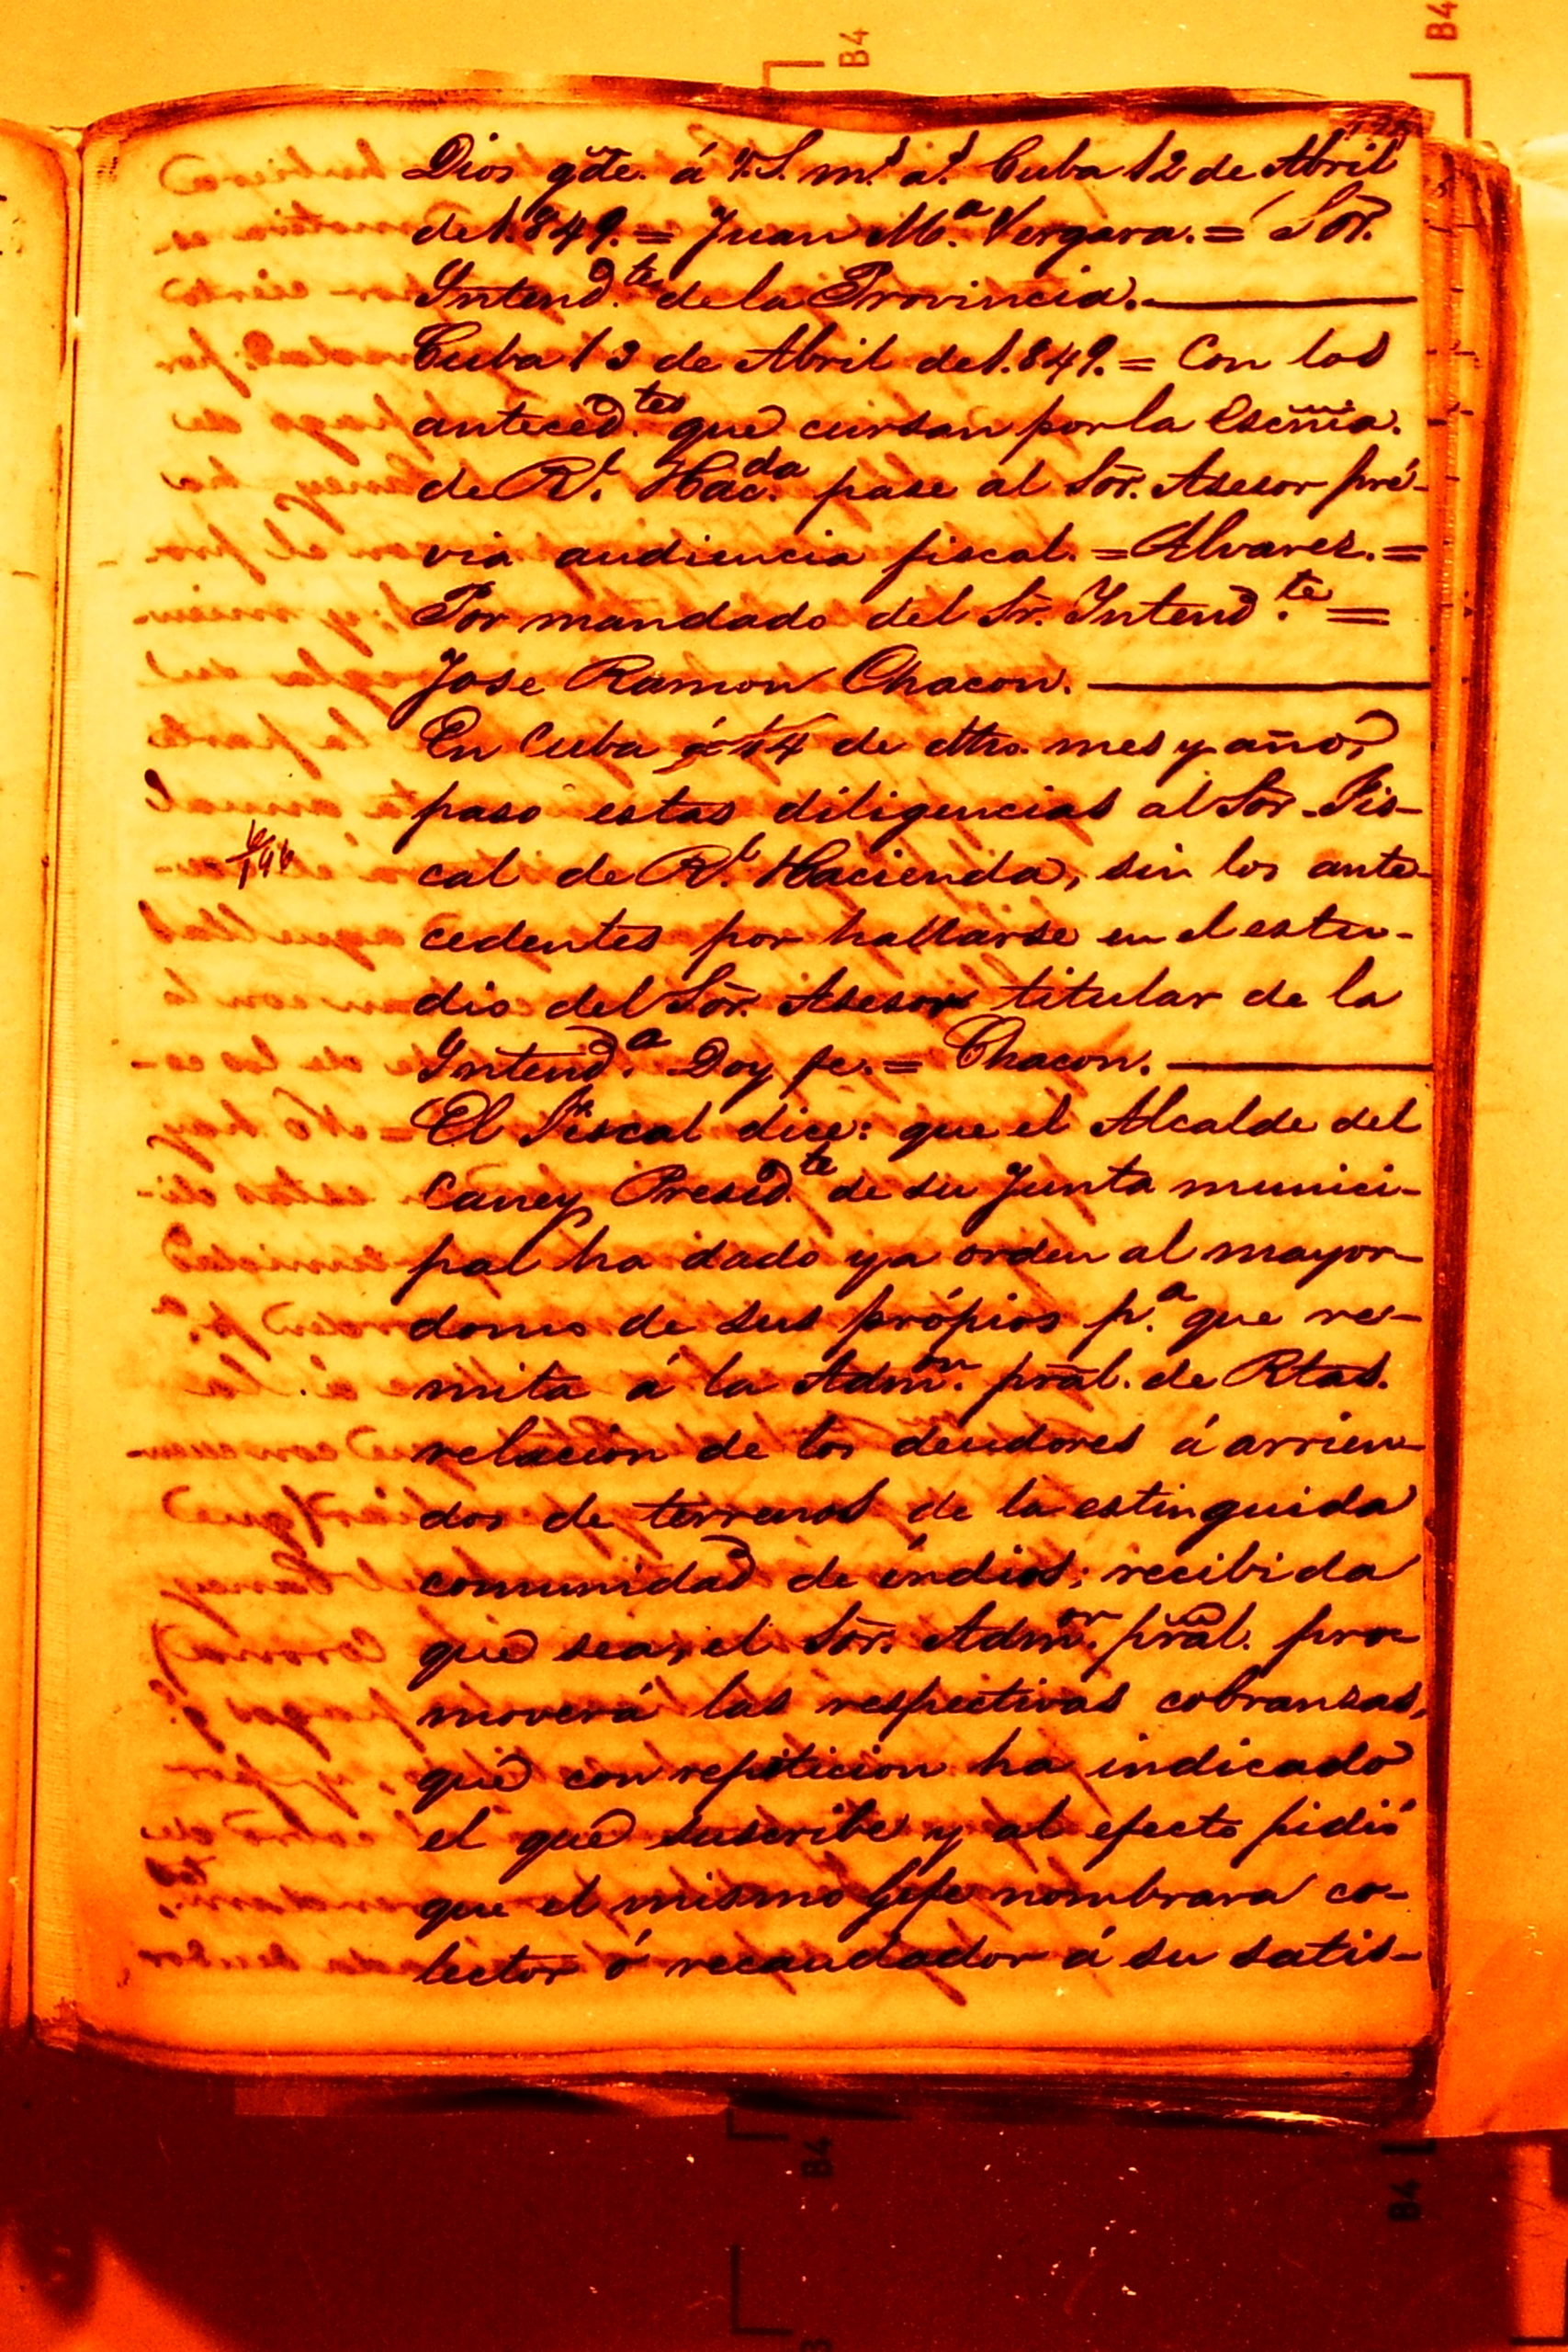 Dios gde. á V.S. ms. as. Cuba 12 de Abril
de 1.849. = Juan Ma. Vergara. = Sor.
Intendte. de la Provincia.
Cuba 13 de Abril de 1.849. = Con los
antecedtes. que cursan por la Escñia.
de Rl. Hacda. pase al Sor. Asesor pré-
via audiencia fiscal. = Alvarez. =
Por mandado del Sr. Intendte. =
Jose Ramon Chacon.
En Cuba á 14 de dho. mes y año,
paso estas diligencias al Sor. Fis-
cal de Rl. Hacienda, sin los ante-
cedentes por hallarse en el estu-
dio del Sor. Asesor titular de la
Intenda. Doy fe. = Chacon.
El Fiscal dice: que el Alcalde del
Caney Presidte. de su Junta munici-
pal ha dado ya orden al mayor-
domo de sus própios pa. que re-
mita á la Admon. pral. de Rtas.
relacion de los deudores á arrien-
dos de terrenos de la estinguida
comunidad de índios; recibida
que sea, el Sor. Admor. pral. pro-
moverá las respectivas cobranzas,
que con repeticion ha indicado
el que suscribe y al efecto pidió
que el mismo Gefe nombrara co-
lector ó recaudador á su satis-
B4
B4
B4
B4